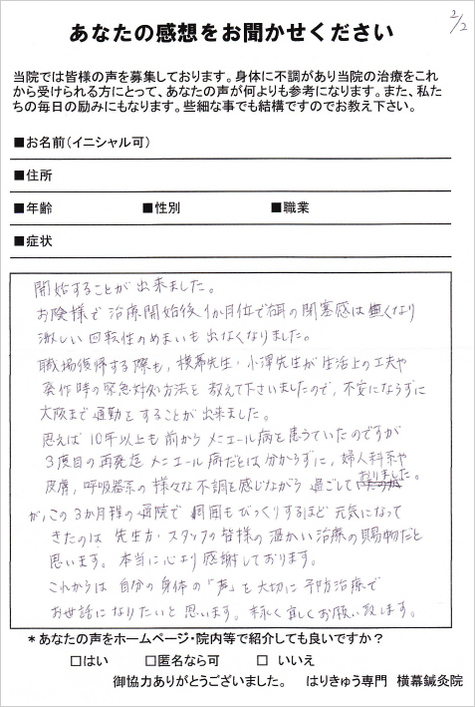 2/2
あなたの感想をお聞かせください
当院では皆様の声を募集しております。身体に不調があり当院の治療をこれ
から受けられる方にとって、あなたの声が何よりも参考になります。また、私た
ちの毎日の励みにもなります。些細な事でも結構ですのでお教え下さい。
■お名前(イニシャル可)
■住所
■年齢 ■性別 ■職業
■症状
開始することが出来ました。
お陰様で治療開始後、1か月位で右耳の閉塞感は無くなり
激しい回転性のめまいも出なくなりました。
職場復帰する際も、横幕先生・小澤先生が生活上の工夫や
発作時の緊急対処方法を教えて下さいましたので、不安にならずに
大阪まで通勤をすることが出来ました。
思えば10年以上も前からメニエール病を患うていたのですが
3度目の再発迄メニエール病だとは分からずに、婦人科系や
皮膚、呼吸器系の様々な不調を感じながら過ごしておりました。
が、この3か月程の通院で周囲もびっくりするほど元気になって
きたのは先生方・スタッフの皆様の温かい治療の賜物だと
思います。本当に心より感謝しております。
これからは自分の身体の「声」を大切に予防治療で
お世話になりたいと思います。末永く宜しくお願い致します。
*あなたの声をホームページ・院内等で紹介しても良いですか?
□はい □匿名なら可 □ いいえ
御協力ありがとうございました。 はりきゅう専門 横幕鍼灸院